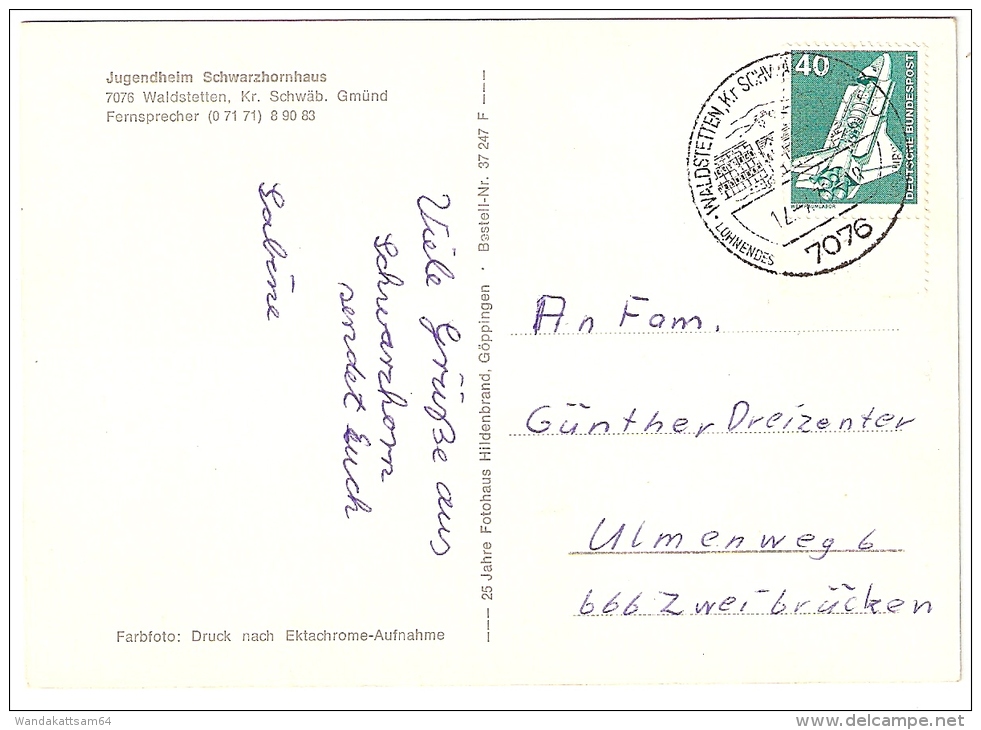 Jugendheim Schwarzhornhaus
7076 Waldstetten, Kr. Schwäb. Gmünd
Fernsprecher (0 71 71) 8 90 83
Viele Grüße aus
Schwarzhorn
sendet Euch
Sabine
Farbfoto: Druck nach Ektachrome-Aufnahme
25 Jahre Fotohaus Hildenbrand, Göppingen · Bestell-Nr. 37 247 F
40
DEUTSCHE BUNDESPOST
WALDSTETTEN, Kr SCHWÄ
LOHNENDES
7076
An Fam.
Günther Dreizenter
Ulmenweg 6
666 Zweibrücken
Wandakattsam64
www.delcampe.net